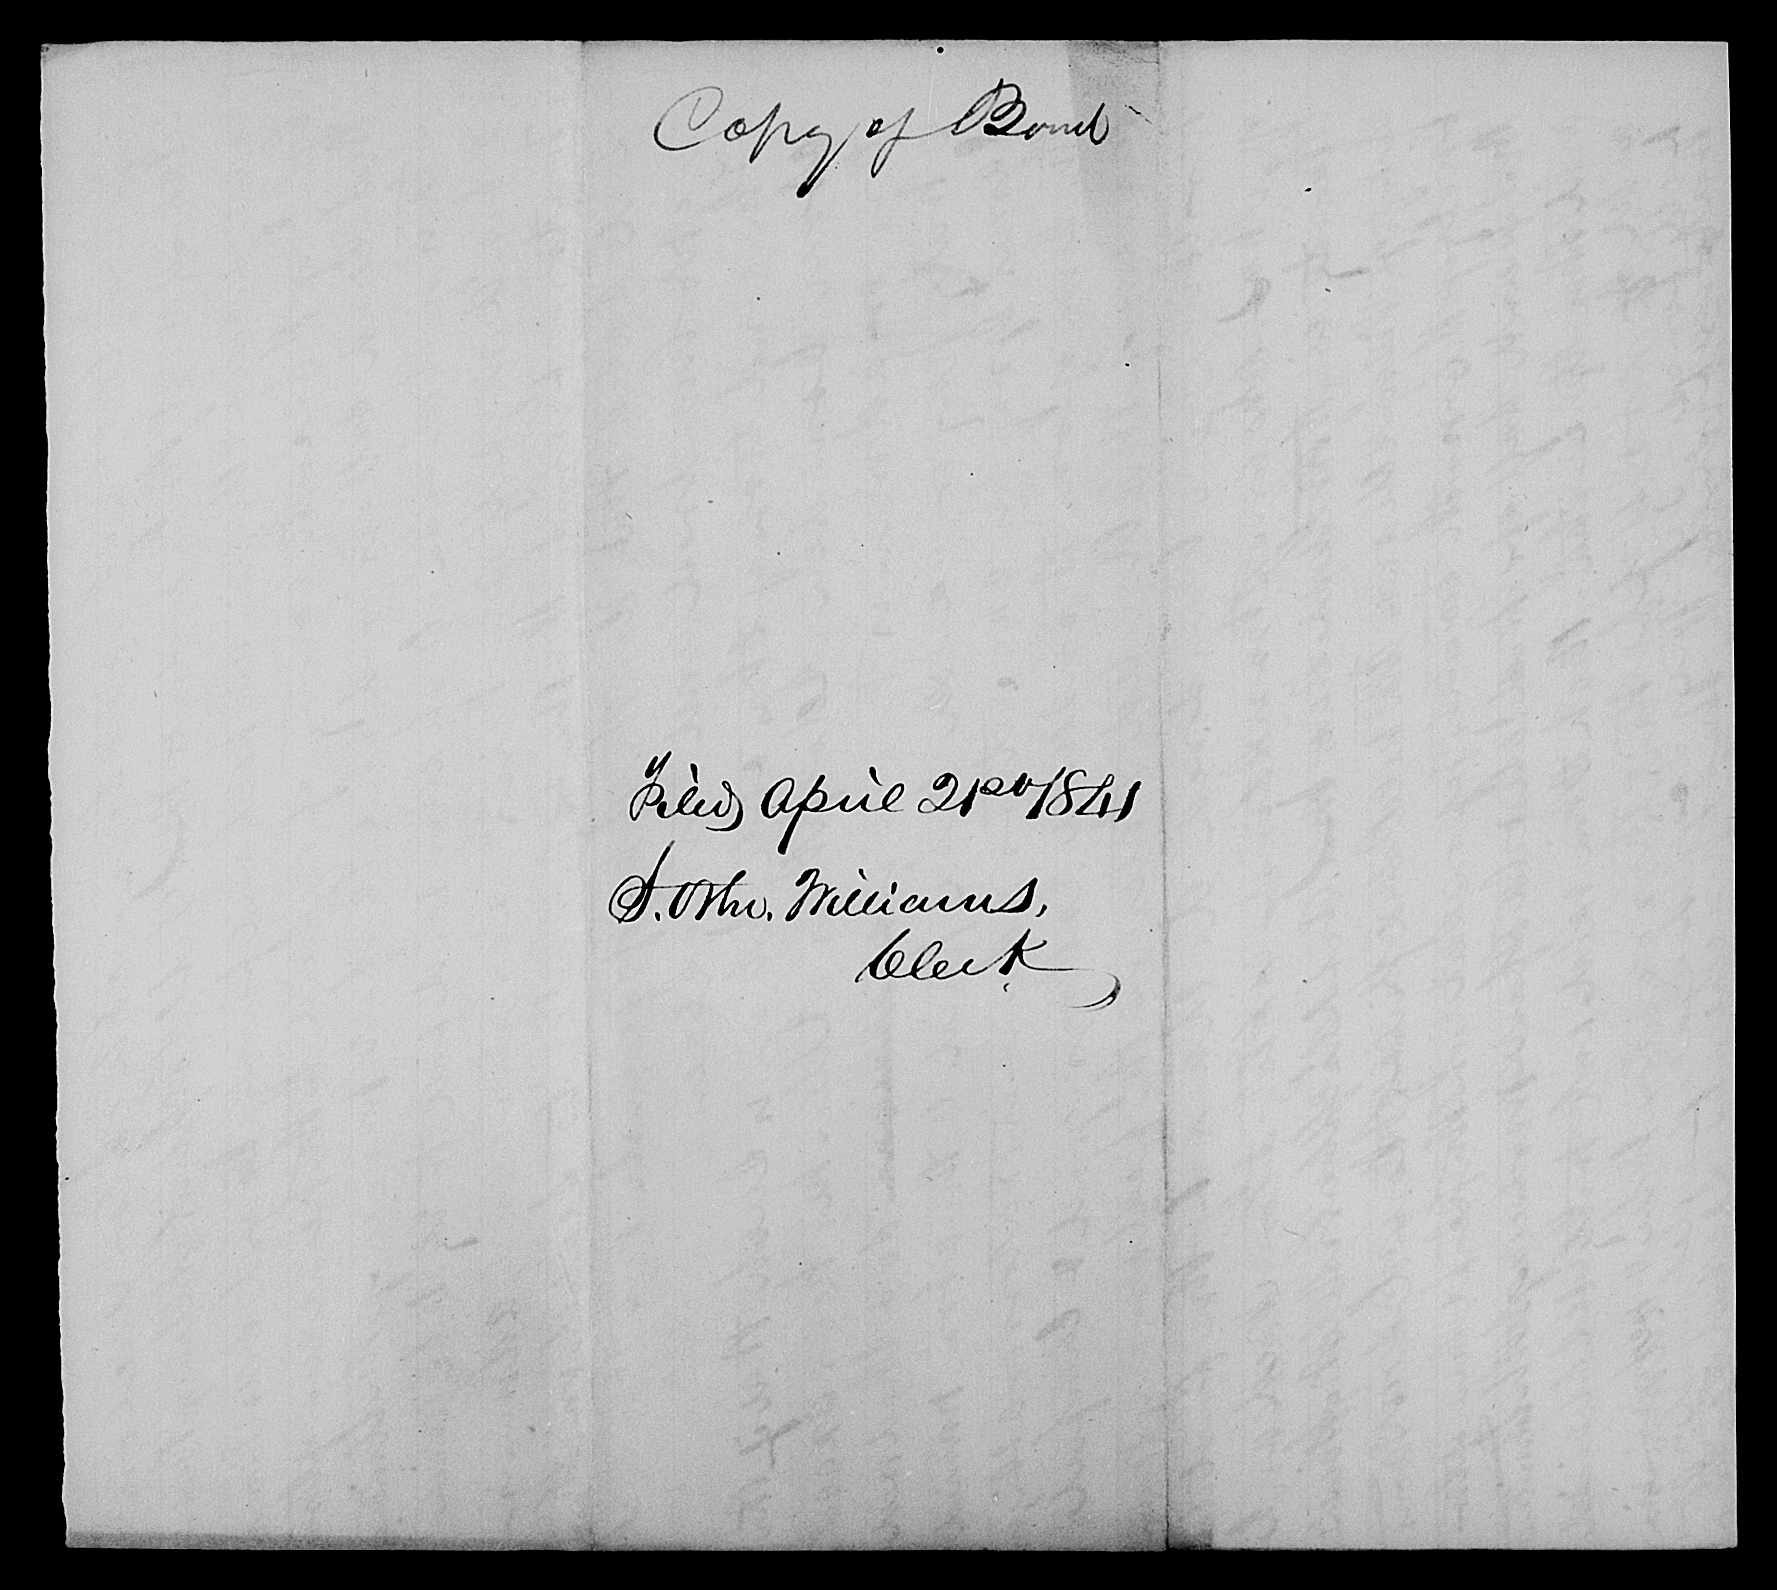 Copy of Bond
Filed April 21st 1841
S. Wm. Williams,
Clerk